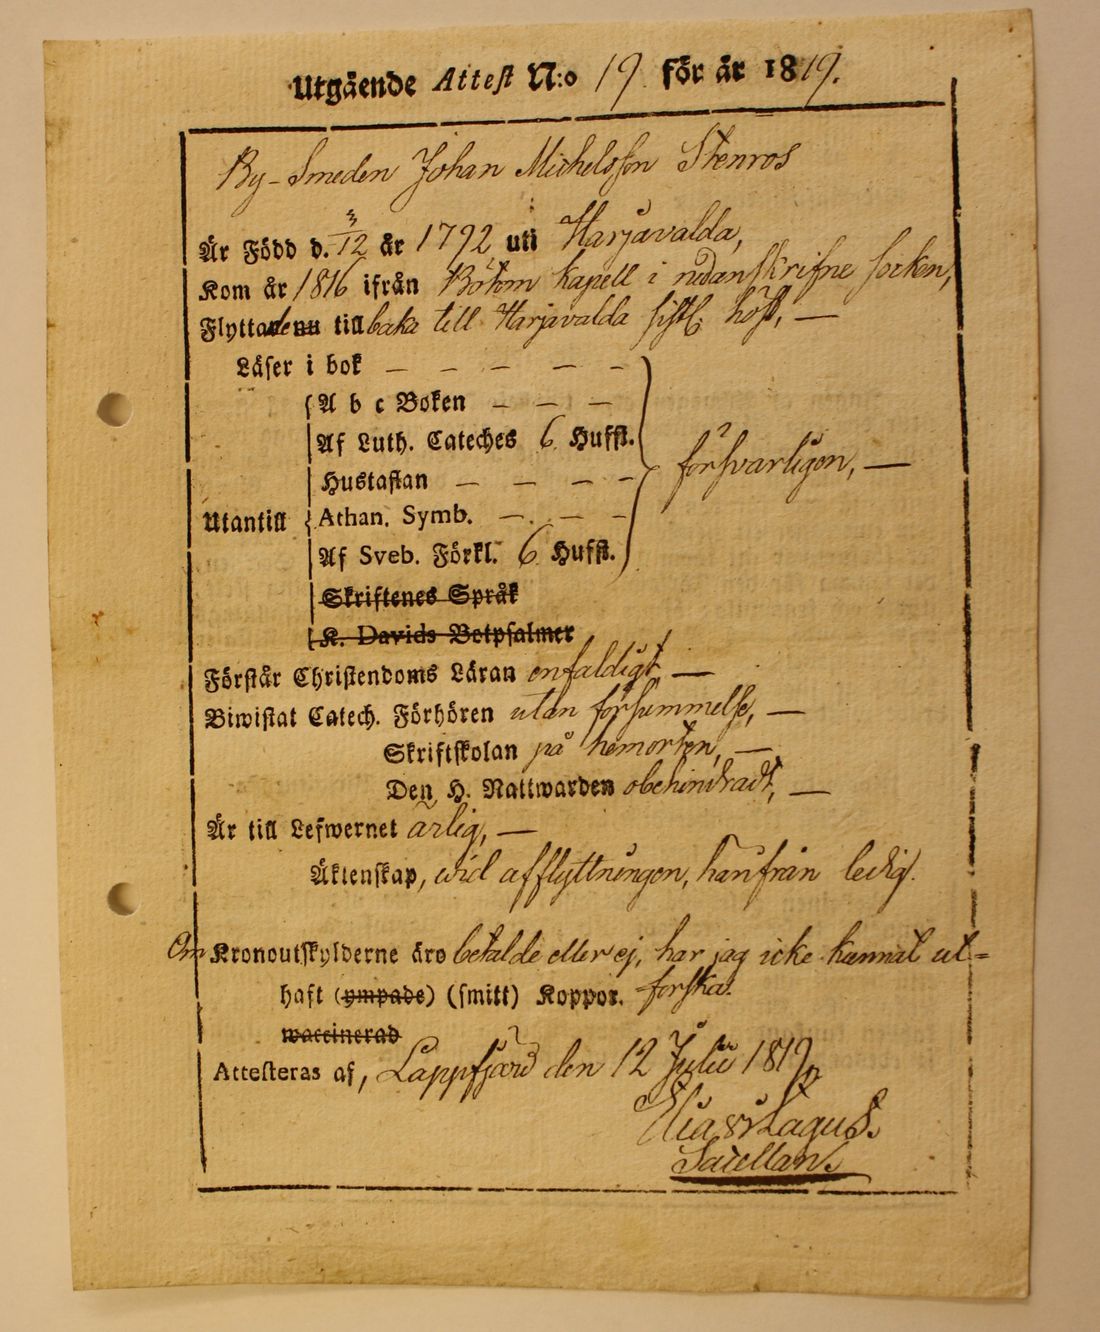 Utgående Attest N:o 19 för år 1819.
By-Smeden Johan Michelsson Stenros
Är Född d. 3/12 år 1792 uti Harjavalda,
Kom år 1816 ifrån Bötom Kapell i nedanskrifne socken,
Flyttade nu tillbaka till Harjavalda sistl. höst, —
Läser i bok — — — — —
A b c Boken — — —
Af Luth. Cateches 6 Hufst.
försvarligen, —
Hustaflan — — — —
Utantill Athan. Symb. — — —
Af Sveb. Förkl. 6 Hufst.
Skriftenes Språk
K. Davids Botpsalmer
Förstår Christendoms Läran enfaldigt, —
Biwistat Catech. Förhören utan försummelse, —
Skriftskolan på hemorten, —
Den H. Nattwarden obehindradt, —
Är till Lefwernet ärlig, —
Äktenskap, wid afflyttningen, härifrån ledig.
Om Kronoutskylderne äro betalde eller ej, har jag icke kunnat ut=
haft (ympade) (smitt) Koppor. forska.
waccinerad
Attesteras af, Lappfjärd den 12 Julii 1819,
Elias Lagus.
Sacellan.